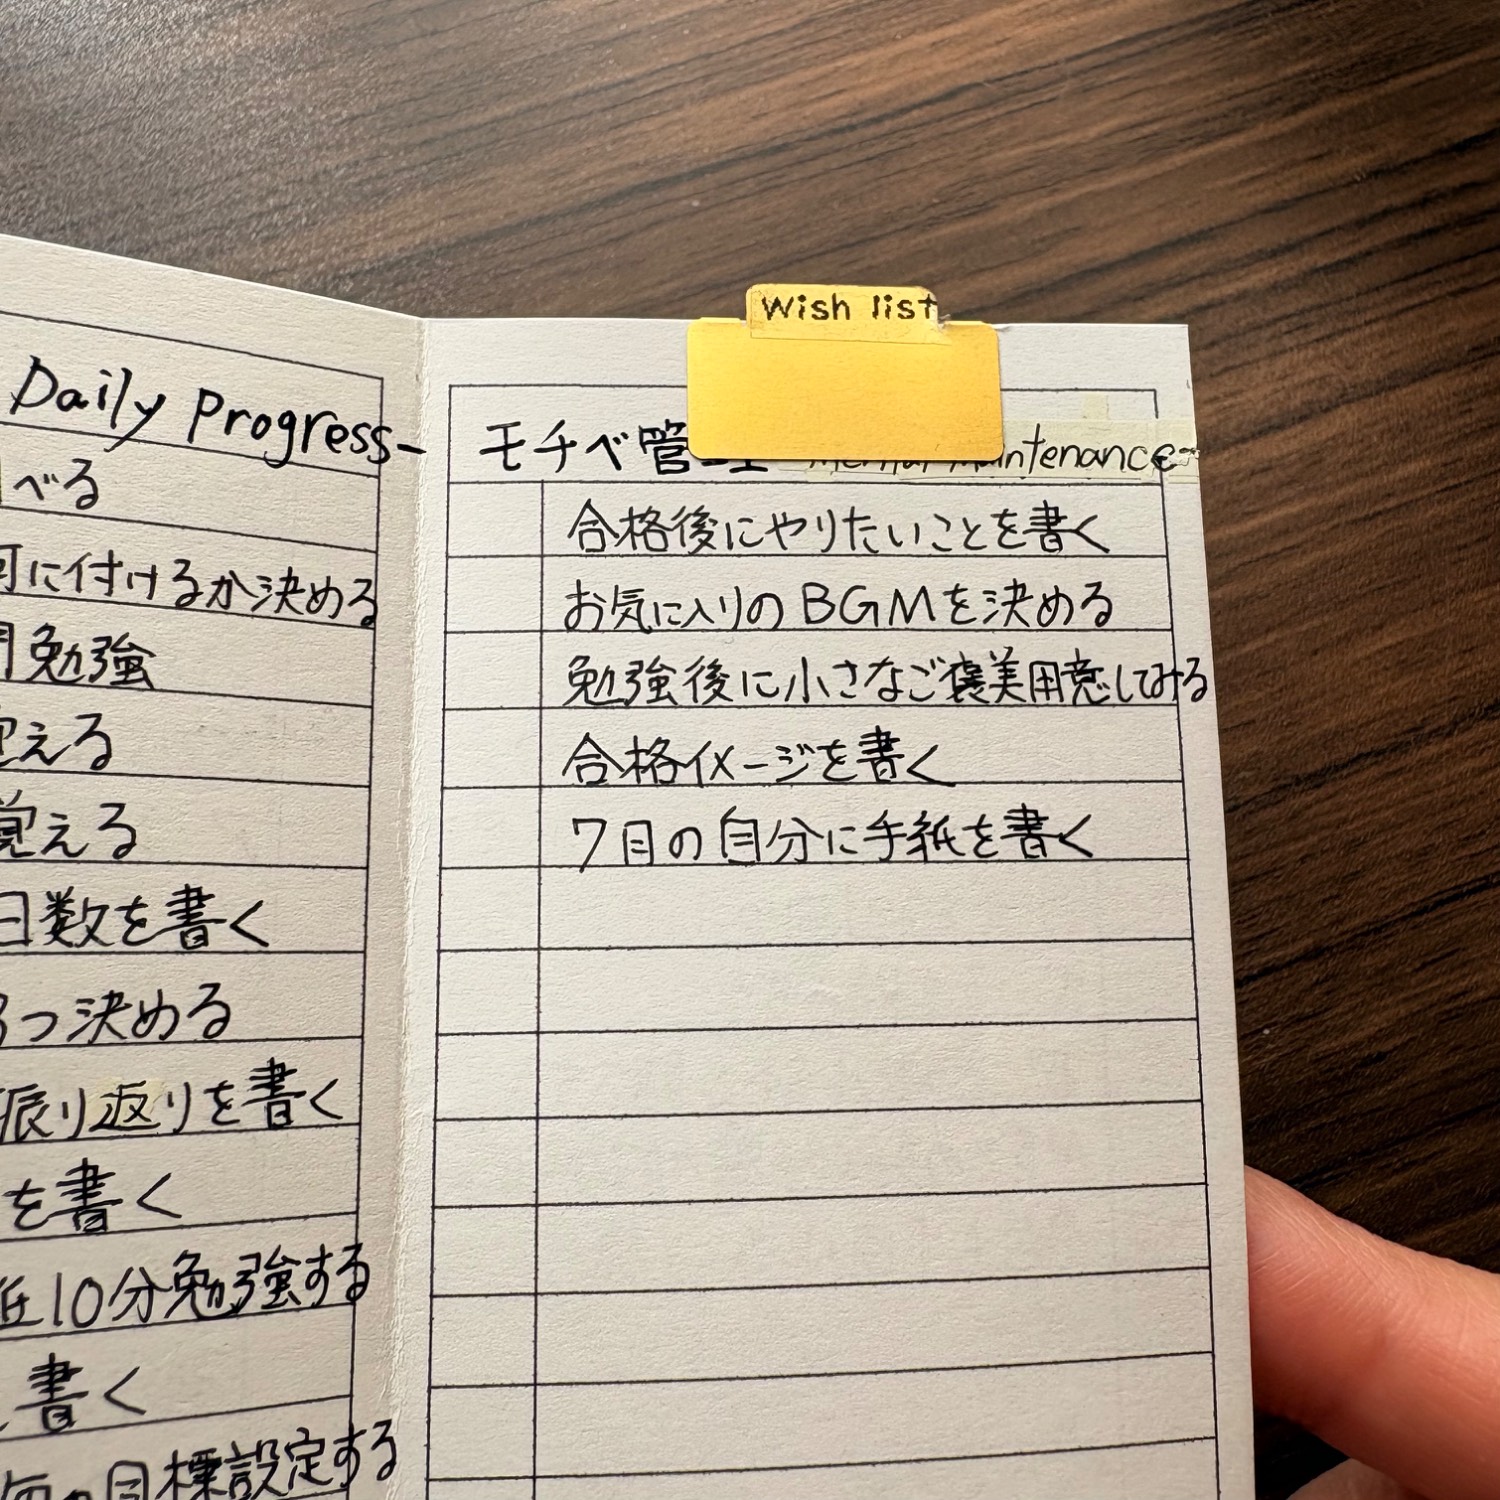 Wish list
Daily Progress-
べる
に付けるか決める
勉強
える
覚える
日数を書く
3つ決める
振り返りを書く
を書く
低10分勉強する
書く
毎の目標設定する
モチベ管理 -Mental Maintenance-
合格後にやりたいことを書く
お気に入りのBGMを決める
勉強後に小さなご褒美用意してみる
合格イメージを書く
7月の自分に手紙を書く